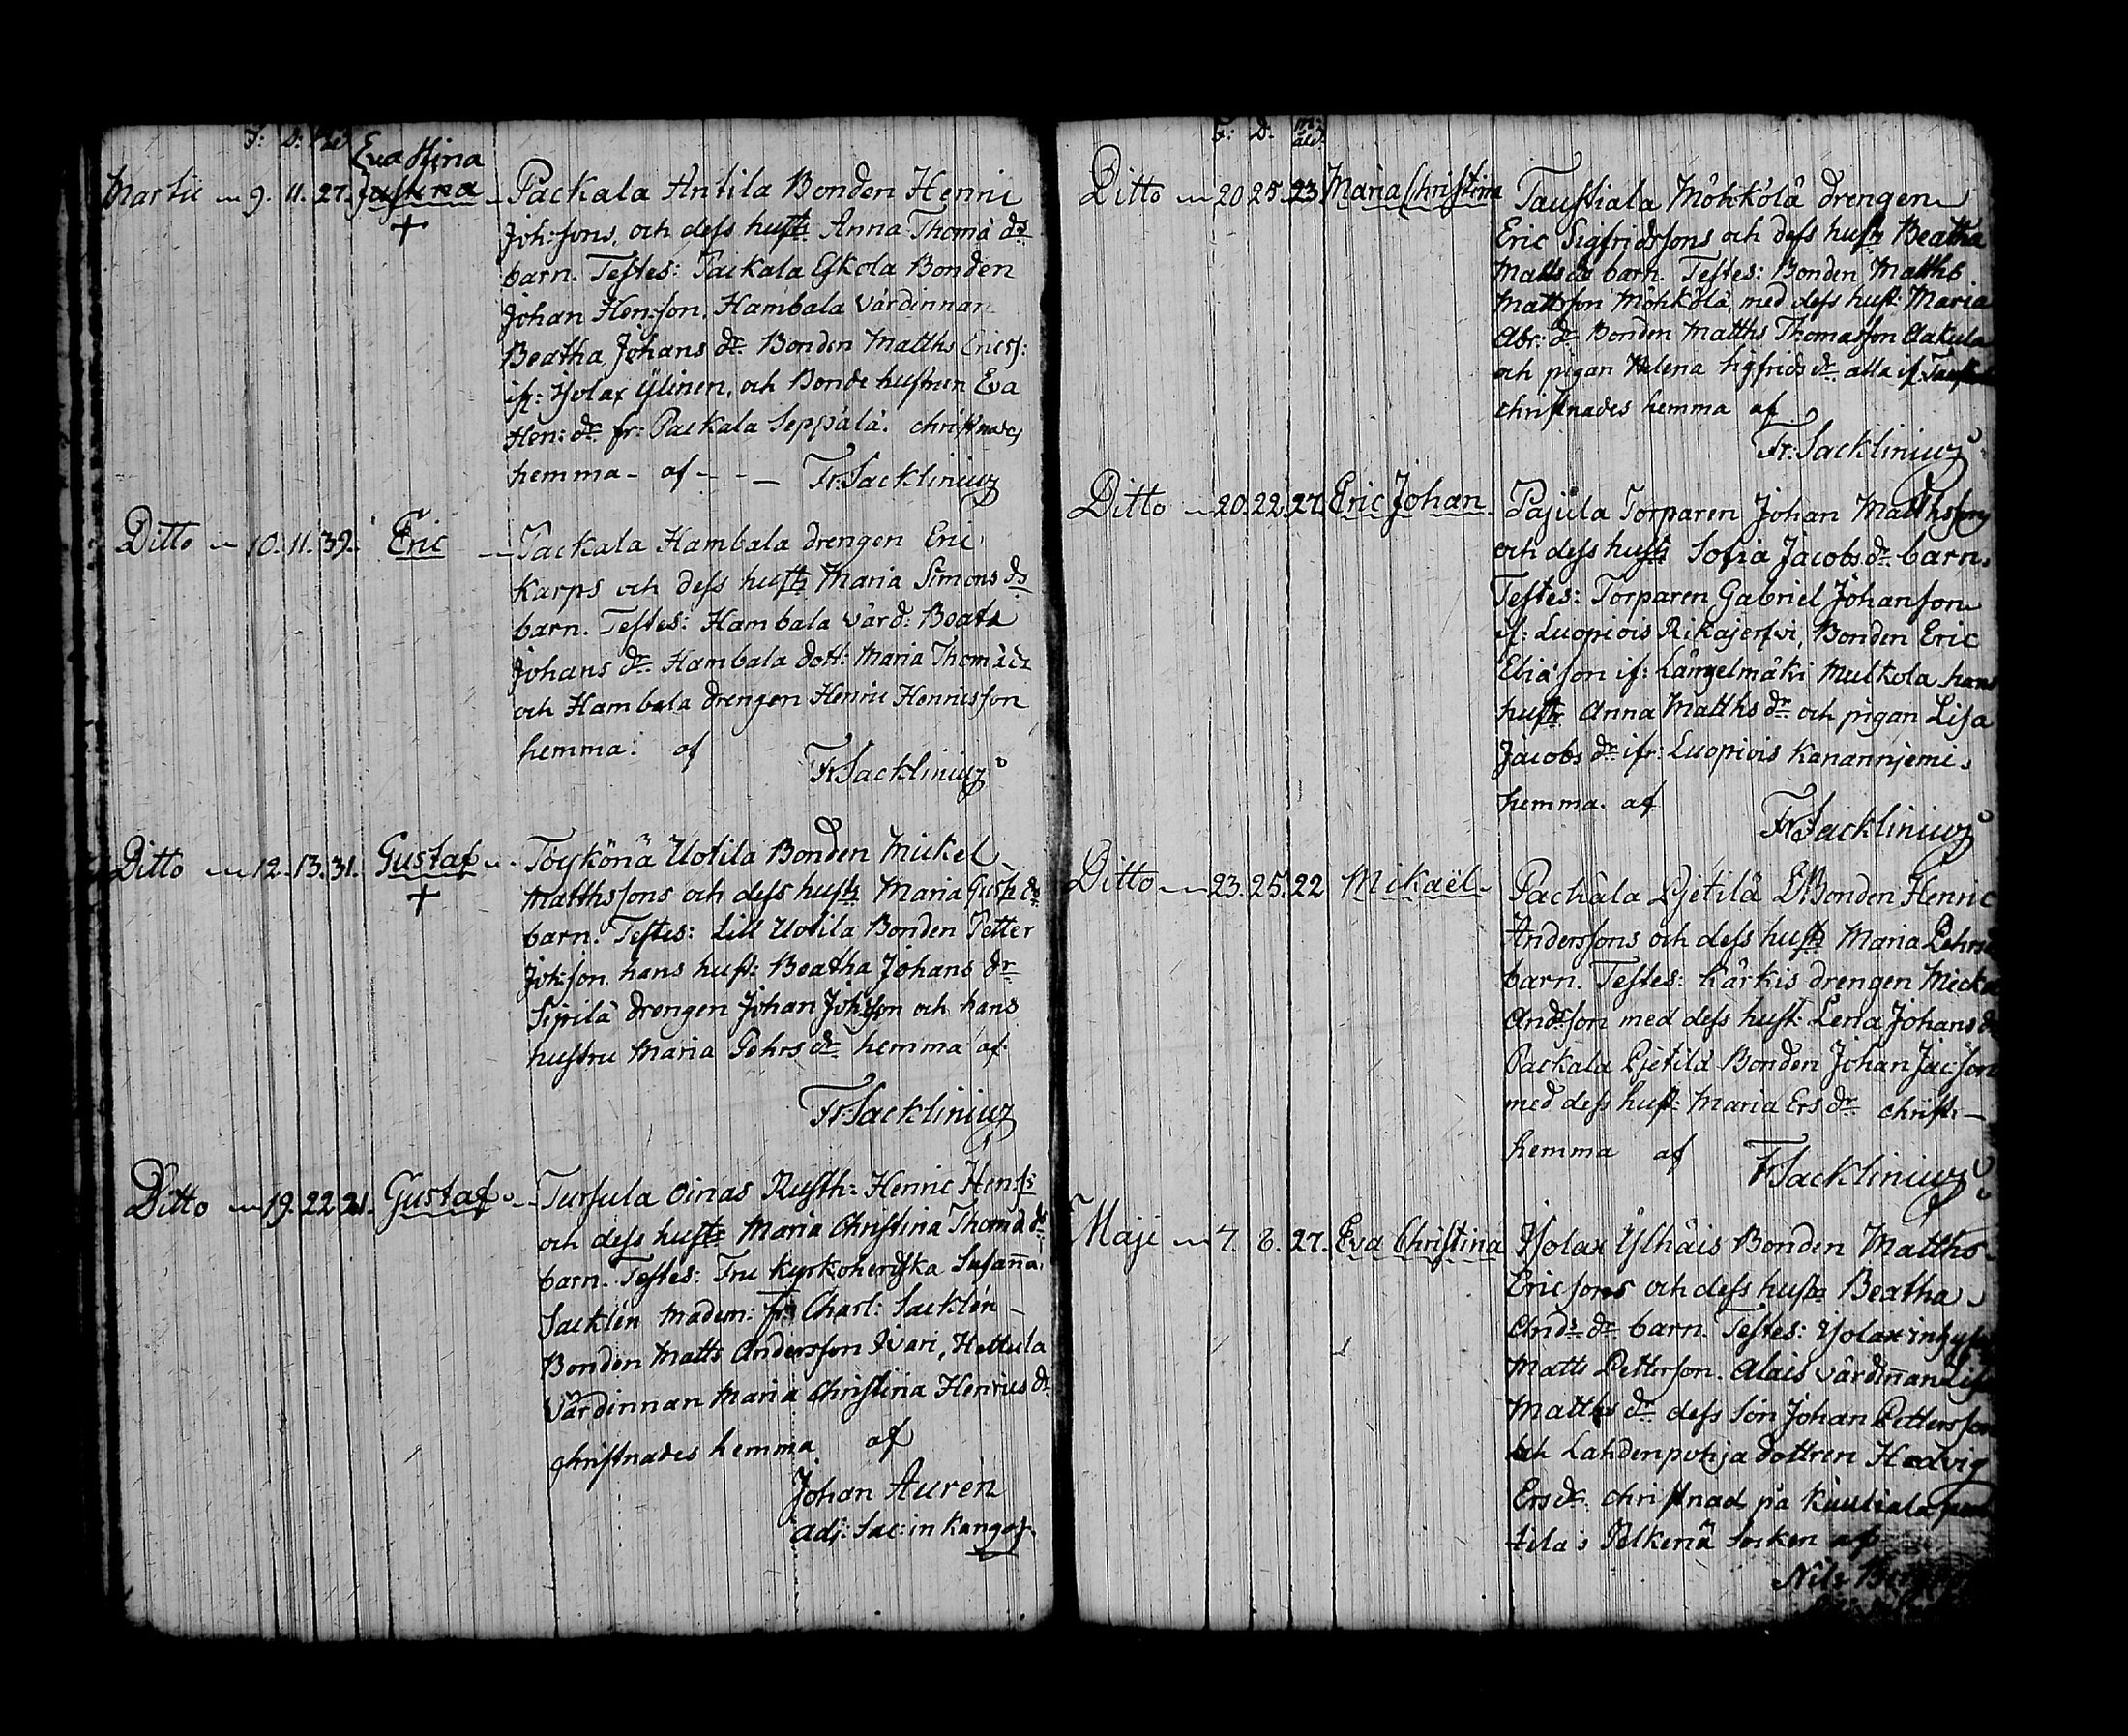 F: D: Ald
Eva Stina
Martii 9. 11. 27. Justina Packala Antila Bonden Henric
Joh:sons, och dess hustr Anna Thomæ dr
barn. Testes: Packala Eskola Bonden
Johan Hen:son, Hambala värdinnan
Beatha Johans dr Bonden Matths Erics:
ifr: Isolax Ylinen, och Bonde hustrun Eva
Hen: dr fr: Packala Seppälä. christnades
hemma - af - - - Fr. Sacklinius
Ditto 10. 11. 39. Eric Packala Hambala drengen Eric
Karps och dess hustr Maria Simons dr
barn. Testes: Hambala värd: Beata
Johans dr. Hambala dott: Maria Thom
och Hambala drengen Henric Henricsson
hemma: af
Fr Sacklinius
Ditto 12. 13. 31. Gustaf Töykönä Uotila Bonden Mickel
Matthssons och dess hustr Maria Gust: dr
barn. Testes: Lill Uotila Bonden Petter
Joh:son hans hust: Beatha Johans dr
Sipilä drengen Johan Joh:son och hans
hustru Maria Pehrs dr hemma af
Fr. Sacklinius
Ditto 19. 22. 21. Gustaf Tursula Oinas Rusth: Henric Hens:s
och dess hustr Maria Christina Thomæ dr
barn. Testes: Fru kyrkoherdska Susanna
Sacklén Madem: Charl: Sacklén
Bonden Matts Andersson Iivari, Hettula
Värdinnan Maria Christina Henrics dr
christnades hemma af
Johan Aurén
adj: Sac: in Kangas.
F: D: m: åld:
Ditto 20 25. 23 Maria Christina Taustiala Möhkölä drengen
Eric Sigfridssons och dess hustr Beatha
Matts dr barn. Testes: Bonden Matths
Mattsson Möhkölä, med dess hust: Maria
Abr: dr Bonden Matths Thomasson Aakula
och pigan Helena Sigfrids dr alla if:
christnades hemma af
Fr: Sacklinius
Ditto 20. 22. 27. Eric Johan Pajula Torparen Johan Matthssons
och dess hustr Sofia Jacobs dr barn.
Testes: Torparen Gabriel Johansson
if: Luopiois Rikajerfvi, Bonden Eric
Eliæson if: Längelmäki Mulkola hans
hustr Anna Matths dr och pigan Lisa
Jacobs dr ifr: Luopiois Kanannjemi.
hemma. af
Fr: Sacklinius
Ditto 23. 25. 22 Mikaël Packala Pjetilä Bonden Henric
Anderssons och dess hustr Maria
barn. Testes: Kärkis drengen
And:son med dess hust: Lena Johans dr
Packala Pjetilä Bonden Johan Jac:son
med dess hust: Maria Ers dr christ:
hemma af Fr Sacklinius
Maji 7. 8. 27. Eva Christina Isolax Ylhäis Bonden Matths
Ericsons och dess hustr Beatha
And:s dr barn. Testes: Isolax
Matts Pettersson. Alais värdinnan
Matths dr dess son Johan Pettersson
och Lahdenpohja dottren Hedvig
Ers dr. christnad på Kuuliala
tila i Pelkenä Socken af
Nils